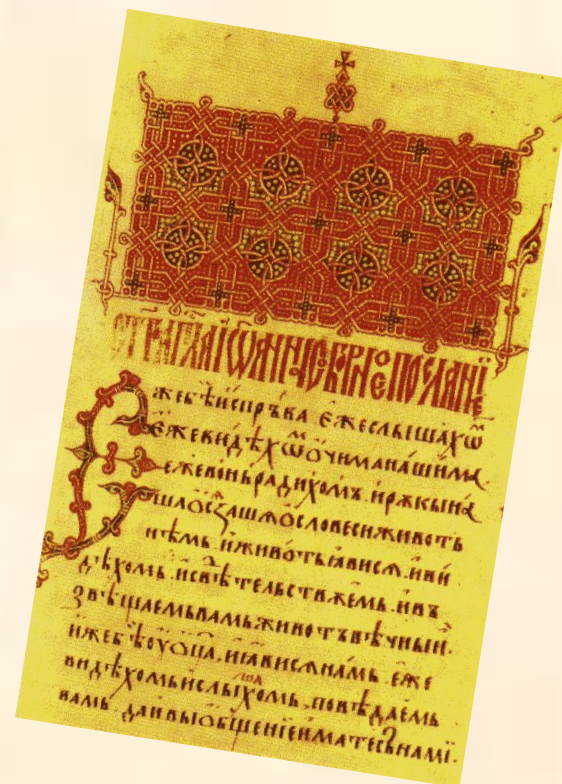 ст҃гаапⷭ҇лаіѡаннасъборноепосланїе
Єжебѣ̀испръва є҆жеслышахѡⷨ
є҆жевидѣхѡⷨ о҆чиманашима
є҆жевоньрадихомъ.ирѫкына
шаѧ̀о҆сѧзашѧ о҆словесиживотъ
нѣмь. и҆живо́тъꙗ҆висѧ. и҆ви
дѣхомь. исвѣтельствꙋемь. ивъ
звѣщаемьвамьживотъвѣчныи.
и҆жебѣоу҆ѡ҆ц҃а, иꙗ҆висѧнамь. є҆же
видѣхомьислышахомь, повѣдаемь
вамь. даивыо҆бщенїеиматесънамї.